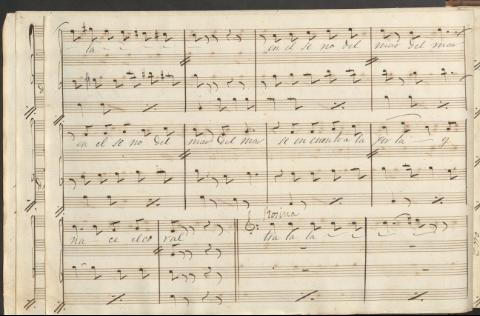 ta en el se no del mar del mar
en el se no del mar del mar se en cuentra la per la y
na ce el co ral
Rosina
tra la la